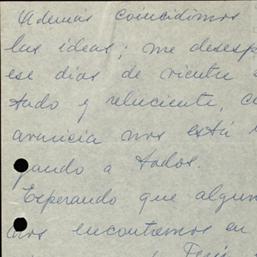 Además coincidimos
las ideas; me desesp
ese dios de vientre
tado y reluciente, c
avaricia nos está
gando a todos.
Esperando que algun
nos encontremos en